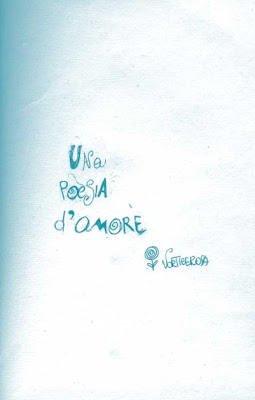 UNa
POESIA
d'AMORE
VORTICEROSA